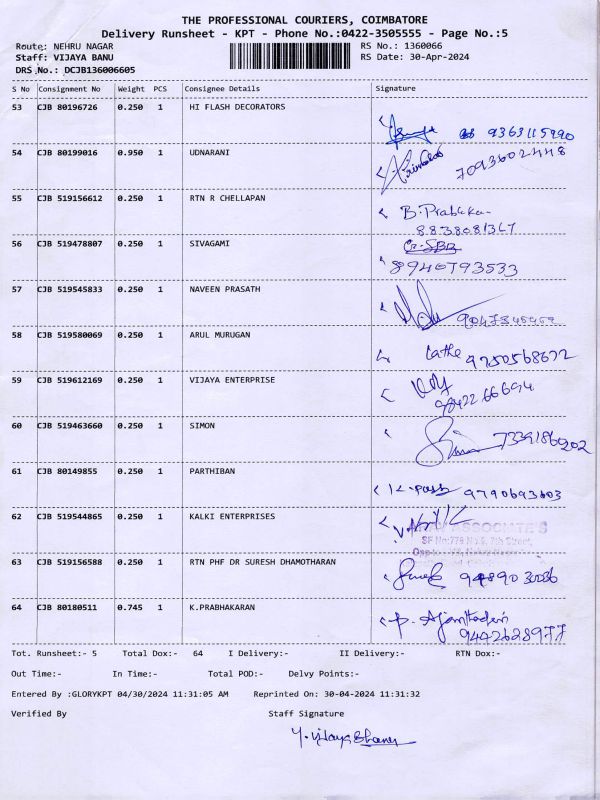 THE PROFESSIONAL COURIERS, COIMBATORE
Delivery Runsheet - KPT - Phone No.:0422-3505555 - Page No.:5
Route: NEHRU NAGAR RS No.: 1360066
Staff: VIJAYA BANU RS Date: 30-Apr-2024
DRS No.: DCJB136006605
S No Consignment No Weight PCS Consignee Details Signature
53 CJB 80196726 0.250 1 HI FLASH DECORATORS
9363115990
54 CJB 80199016 0.950 1 UDNARANI
7093602448
55 CJB 519156612 0.250 1 RTN R CHELLAPAN
B. Prabaka
8838081367
56 CJB 519478807 0.250 1 SIVAGAMI
8940793533
57 CJB 519545833 0.250 1 NAVEEN PRASATH
58 CJB 519580069 0.250 1 ARUL MURUGAN
Lathe 9750568672
59 CJB 519612169 0.250 1 VIJAYA ENTERPRISE
9842266694
60 CJB 519463660 0.250 1 SIMON
73391860202
61 CJB 80149855 0.250 1 PARTHIBAN
9790693603
62 CJB 519544865 0.250 1 KALKI ENTERPRISES
ASSOCIATES
SF No:778 No.9, 7th Street,
63 CJB 519156588 0.250 1 RTN PHF DR SURESH DHAMOTHARAN
64 CJB 80180511 0.745 1 K.PRABHAKARAN
9442628977
Tot. Runsheet:- 5 Total Dox:- 64 I Delivery:- II Delivery:- RTN Dox:-
Out Time:- In Time:- Total POD:- Delvy Points:-
Entered By :GLORYKPT 04/30/2024 11:31:05 AM Reprinted On: 30-04-2024 11:31:32
Verified By Staff Signature
Y. Vijaya Bhanu